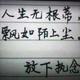 人生无根蒂
飘如陌上尘
放下执念